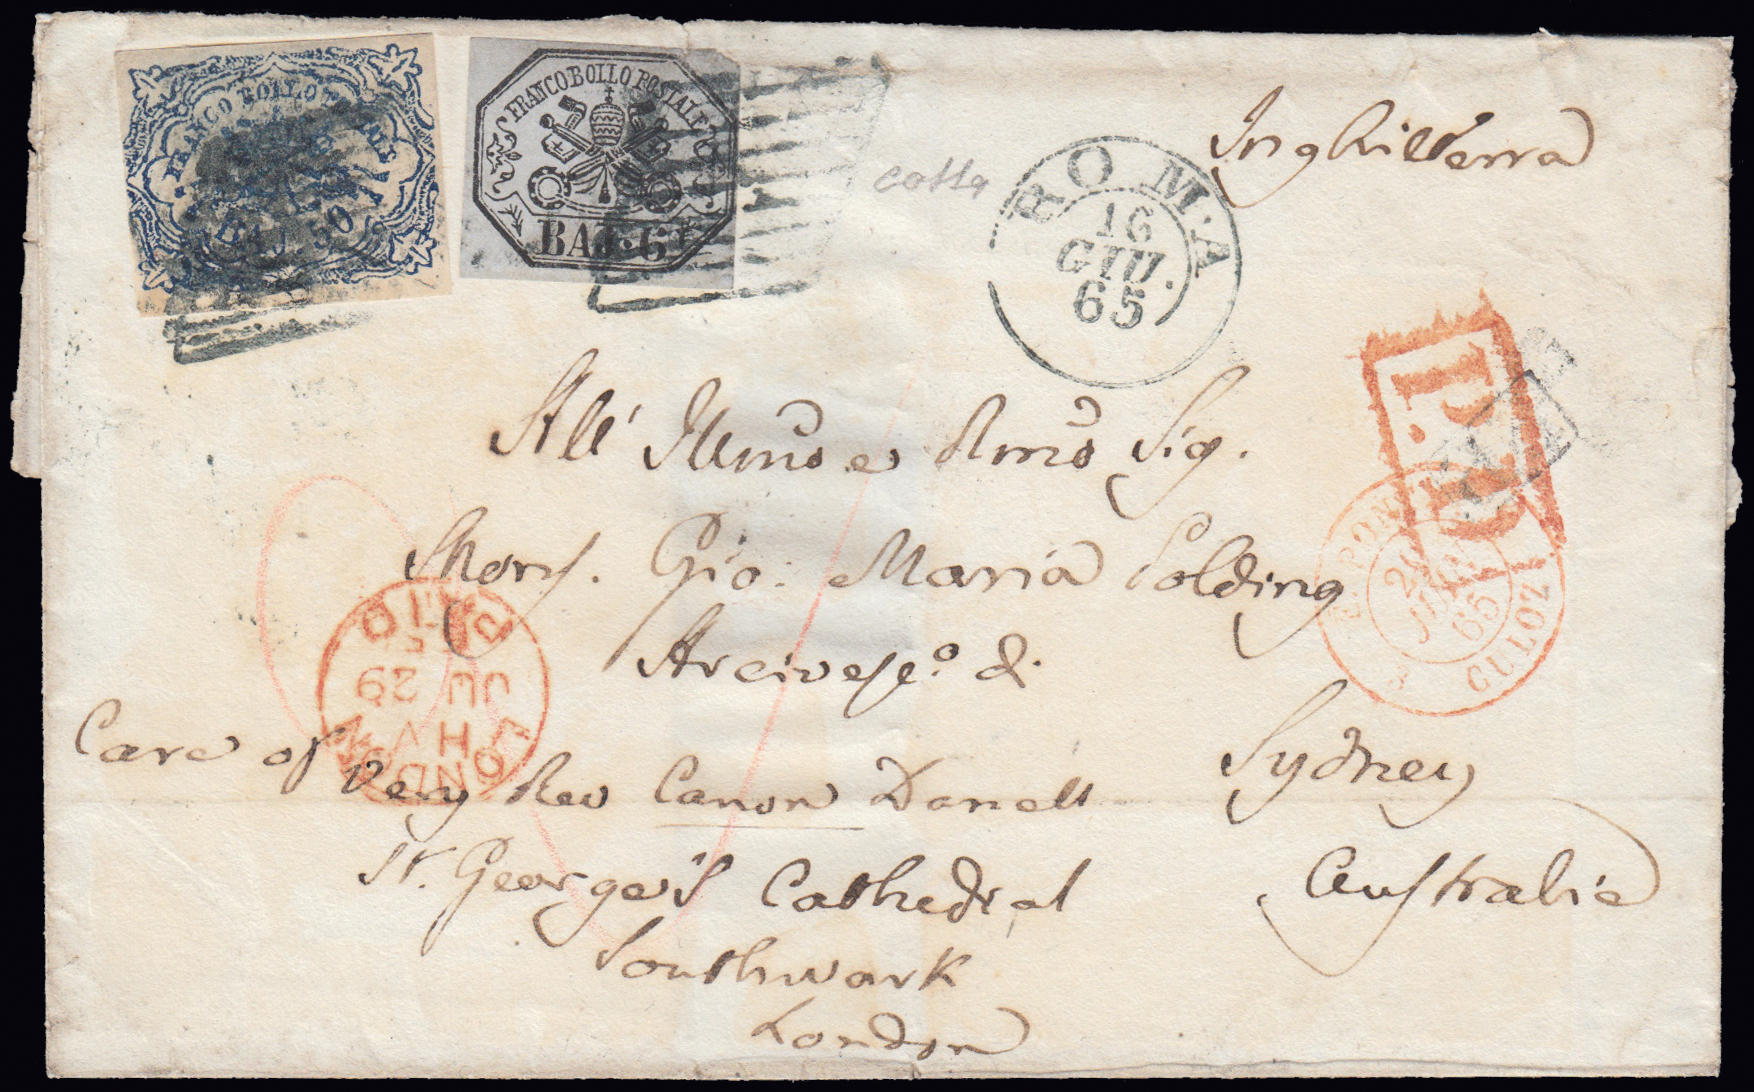 FRANCO BOLLO
BAJ 50
FRANCO BOLLO POSTALE
BAJ. 6
Inghilterra
ROMA
16
GIU.
65
P.D.
All' Illmo e Rmo Sig.
Mons. Gio. Maria Polding
Arcivesc.o di
Sydney
Australia
PONT
CULOZ
65
LONDON
HV
JU 29
PAID
Care of
Very Rev Canon Danell
St. George's Cathedral
Southwark
London